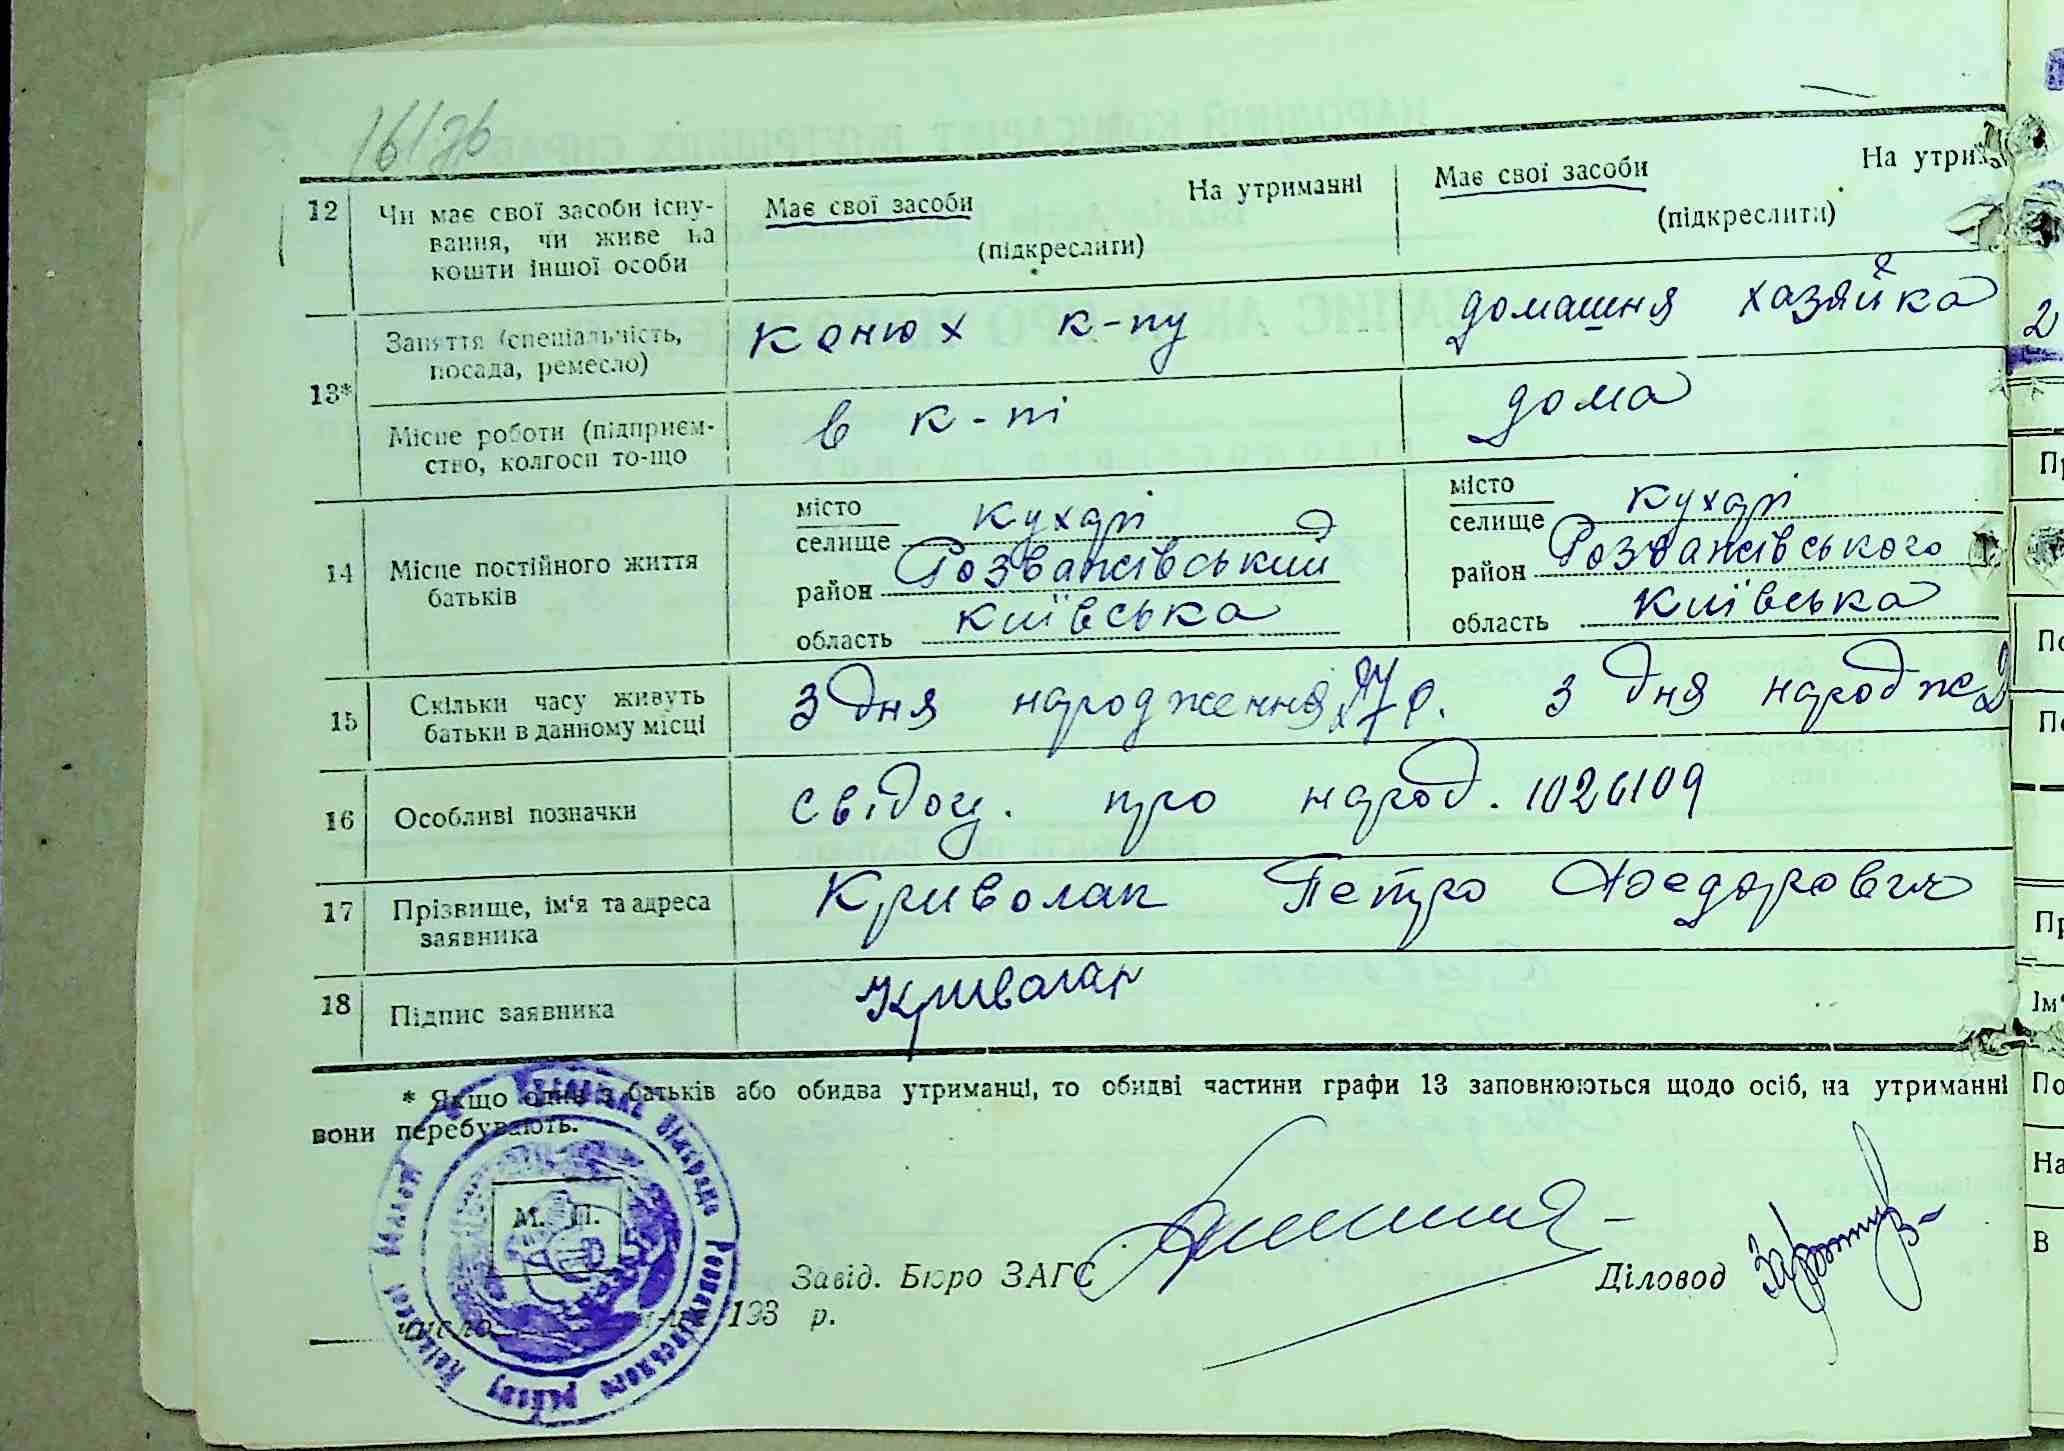 12
Чи має свої засоби існу-
вання, чи живе на
кошти іншої особи
Має свої засоби На утриманні
(підкреслити)
Має свої засоби На утрим
(підкреслити)
13*
Заняття (спеціальність,
посада, ремесло)
конюх к-пу
домашня хазяйка
Місце роботи (підприєм-
ство, колгосп то-що
в к-пі
дома
14
Місце постійного життя
батьків
місто
селище Кухарі
район Розважівський
область Київська
місто
селище Кухарі
район Розважівського
область Київська
15
Скільки часу живуть
батьки в данному місці
З дня народження 27 р. З дня народж
16
Особливі позначки
свідоц. про народ. 1026109
17
Прізвище, ім'я та адреса
заявника
Криволап Петро Федорович
18
Підпис заявника
* Якщо один з батьків або обидва утриманці, то обидві частини графи 13 заповнюються щодо осіб, на утриманні
вони перебувають.
М. П.
Завід. Бюро ЗАГС
Діловод
число 193 р.